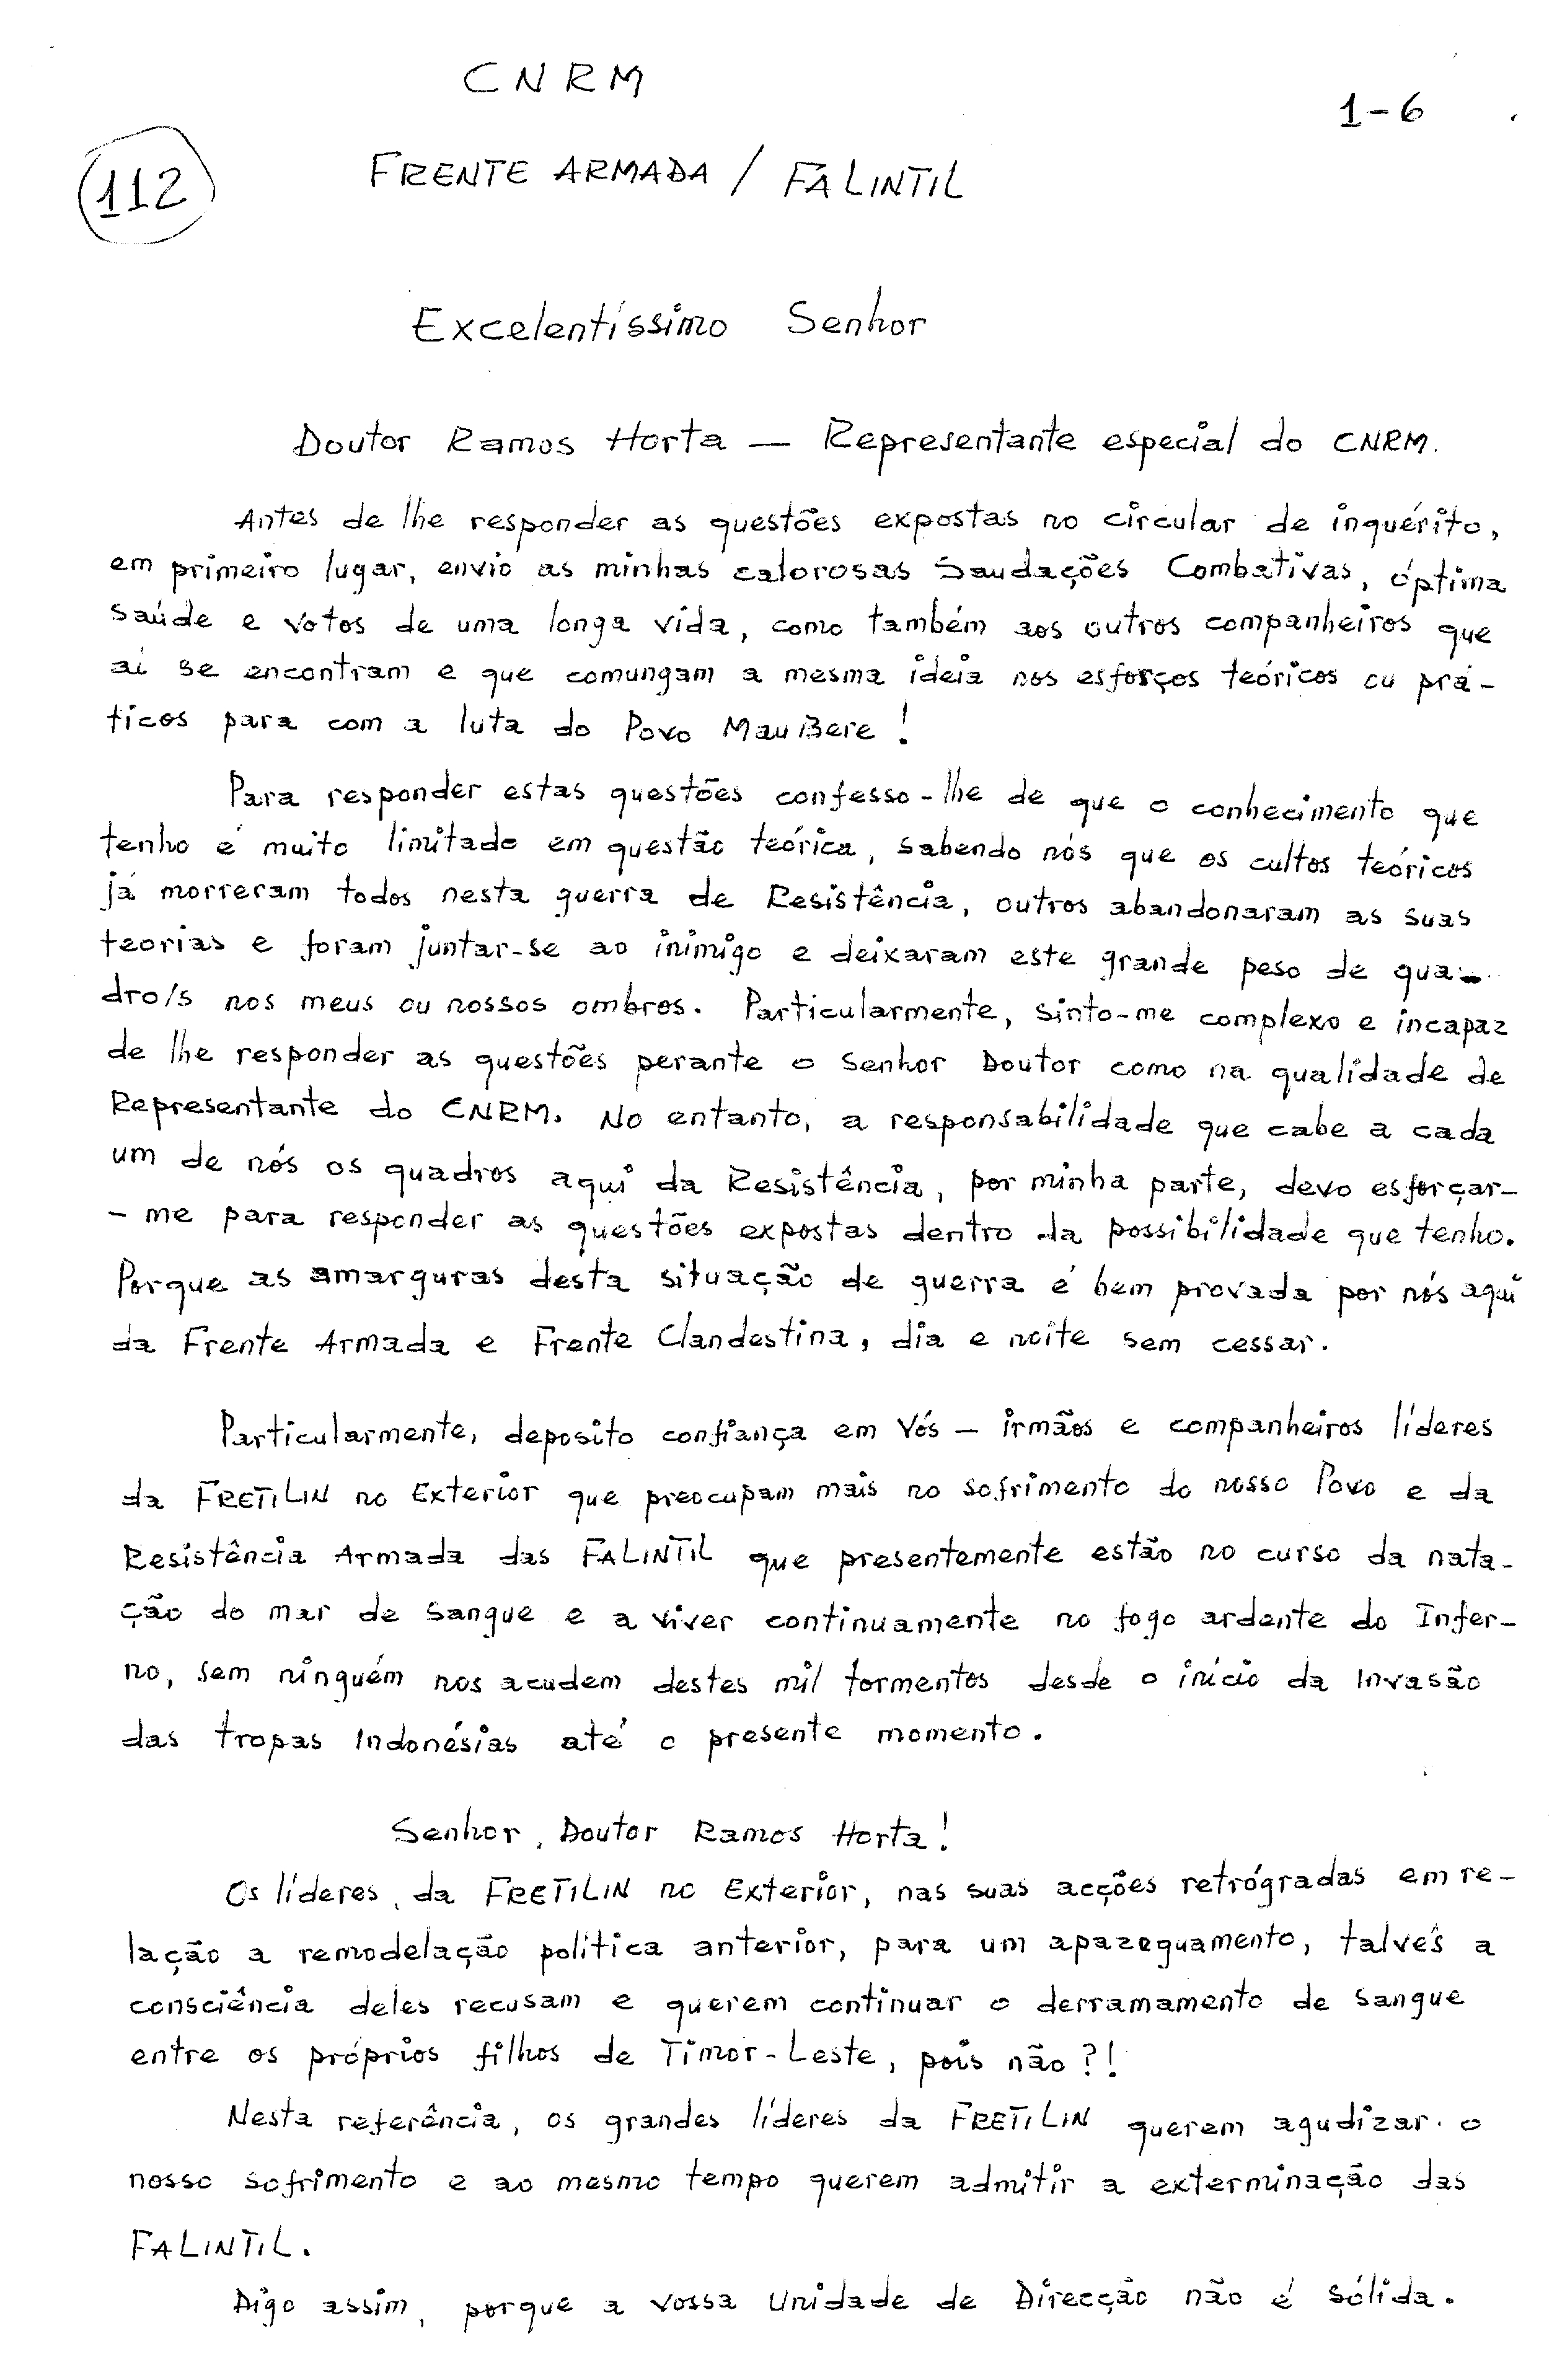 CNRM
1-6
112
FRENTE ARMADA / FALINTIL
Excelentíssimo Senhor
Doutor Ramos Horta — Representante especial do CNRM.
Antes de lhe responder as questões expostas no circular de inquérito,
em primeiro lugar, envio as minhas calorosas Saudações Combativas, óptima
saúde e votos de uma longa vida, como também aos outros companheiros que
aí se encontram e que comungam a mesma ideia nos esforços teóricos ou prá-
ticos para com a luta do Povo MauBere!
Para responder estas questões confesso-lhe de que o conhecimento que
tenho é muito limitado em questão teórica, sabendo nós que os cultos teóricos
já morreram todos nesta guerra de Resistência, outros abandonaram as suas
teorias e foram juntar-se ao inimigo e deixaram este grande peso de qua-
dro/s nos meus ou nossos ombros. Particularmente, sinto-me complexo e incapaz
de lhe responder as questões perante o Senhor Doutor como na qualidade de
Representante do CNRM. No entanto, a responsabilidade que cabe a cada
um de nós os quadros aqui da Resistência, por minha parte, devo esforçar-
- me para responder as questões expostas dentro da possibilidade que tenho.
Porque as amarguras desta situação de guerra é bem provada por nós aqui
da Frente Armada e Frente Clandestina, dia e noite sem cessar.
Particularmente, deposito confiança em Vós — irmãos e companheiros líderes
da FRETILIN no Exterior que preocupam mais no sofrimento do nosso Povo e da
Resistência Armada das FALINTIL que presentemente estão no curso da nata-
ção do mar de sangue e a viver continuamente no fogo ardente do Infer-
no, sem ninguém nos acudem destes mil tormentos desde o início da Invasão
das tropas Indonésias até o presente momento.
Senhor, Doutor Ramos Horta!
Os líderes, da FRETILIN no Exterior, nas suas acções retrógradas em re-
lação a remodelação política anterior, para um apazeguamento, talvês a
consciência deles recusam e querem continuar o derramamento de sangue
entre os próprios filhos de Timor-Leste, pois não?!
Nesta referência, os grandes líderes da FRETILIN querem agudizar o
nosso sofrimento e ao mesmo tempo querem admitir a exterminação das
FALINTIL.
Digo assim, porque a vossa Unidade de Direcção não é sólida.